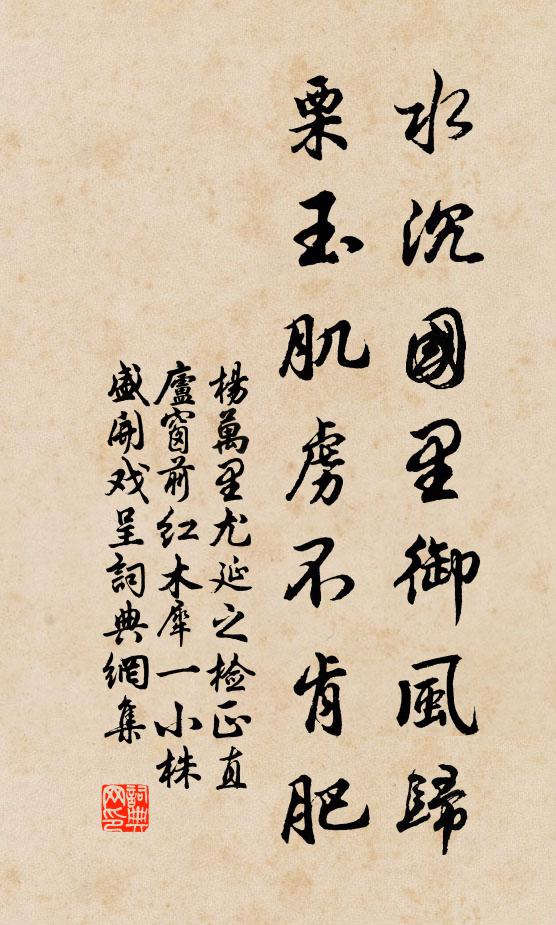 水沉國里御風歸
栗玉肌膚不肯肥
楊萬里尤延之檢正直
廬窗前紅木犀一小株
盛開戏呈詞典網集
詞典
网印